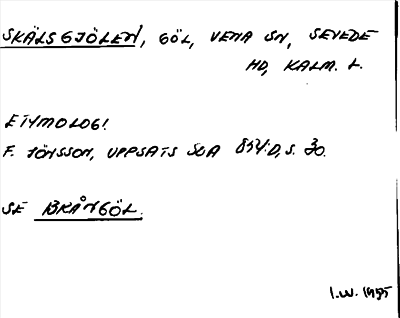 SKÄLSGJÖLEN, GÖL, VENA SN, SEVEDE
HD, KALM. L.
ETYMOLOGI
F. JÖNSSON, UPPSATS SOA 854:D, S. 30.
SE BRÅNGÖL.
I.W. 1955